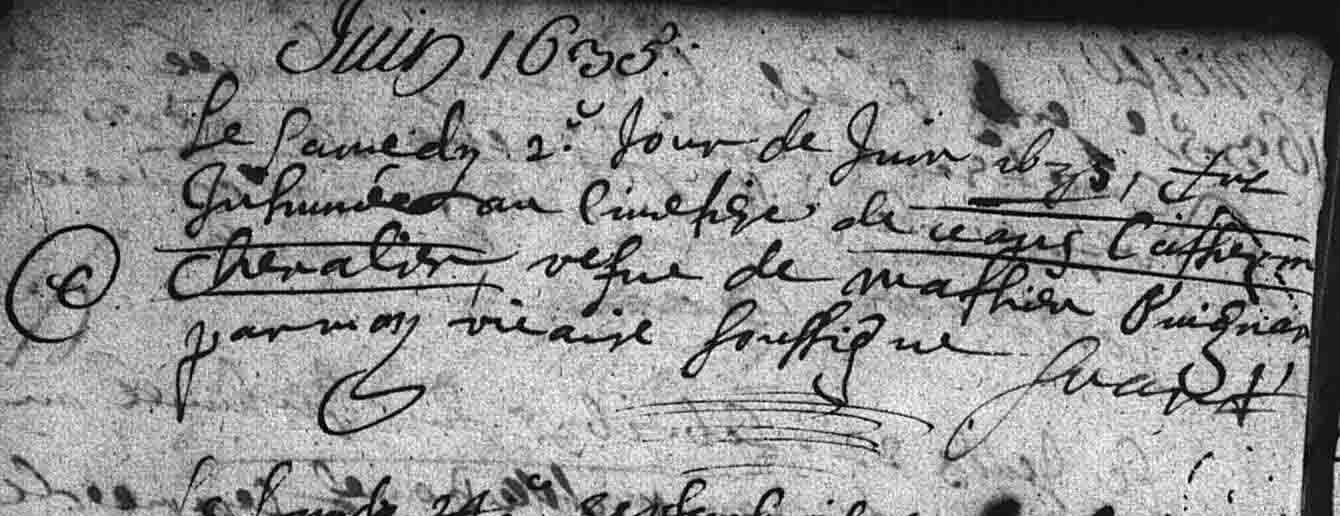 Juin 1635.
Le Samedy 2.e Jour de Juin 1635, fut
Inhumée au Cimetiere de ceans Catherine
Chevalier, vefue de Mathieu Puignan
par moy vicaire soussigne
Le lundi 24e septembre